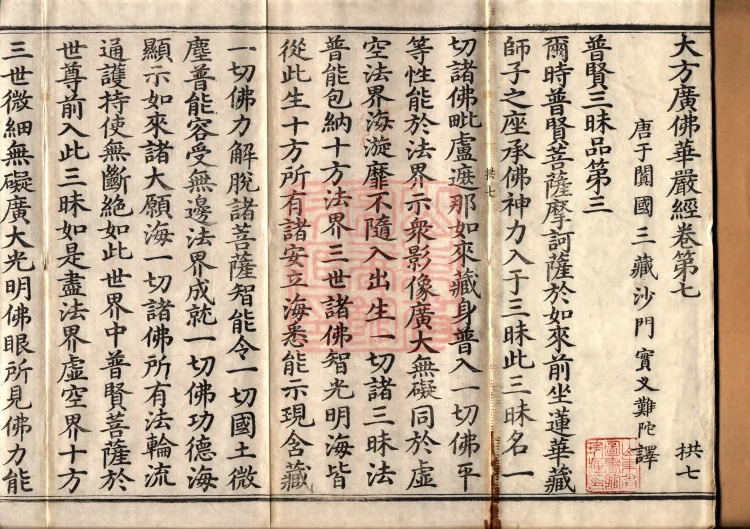 大方廣佛華嚴經卷第七 拱七
唐于闐國三藏沙門實叉難陀譯
普賢三昧品第三
爾時普賢菩薩摩訶薩於如來前坐蓮華藏
師子之座承佛神力入于三昧此三昧名一
拱七
切諸佛毗盧遮那如來藏身普入一切佛平
等性能於法界示衆影像廣大無礙同於虛
空法界海漩靡不隨入出生一切諸三昧法
普能包納十方法界三世諸佛智光明海皆
從此生十方所有諸安立海悉能示現含藏
一切佛力解脫諸菩薩智能令一切國土微
塵普能容受無邊法界成就一切佛功德海
顯示如來諸大願海一切諸佛所有法輪流
通護持使無斷絕如此世界中普賢菩薩於
世尊前入此三昧如是盡法界虛空界十方
三世微細無礙廣大光明佛眼所見佛力能